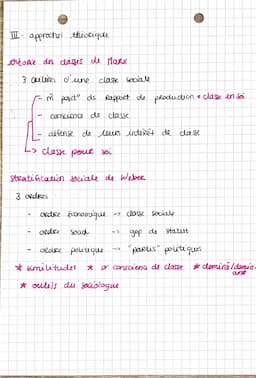 III - approche théorique
théorie des classes de Marx
3 critères d'une classe sociale
- m̂ posit° ds rapport de production = classe en soi
- conscience de classe
- défense de leurs intérêts de classe
↳ classe pour soi
Stratification sociale de Weber
3 ordres
- ordre économique -> classe sociale
- ordre social -> gap de statut
- ordre politique -> "partis" politiques
* similitudes * ø conscience de classe * dominé/domin-
ant
* outils du sociologue